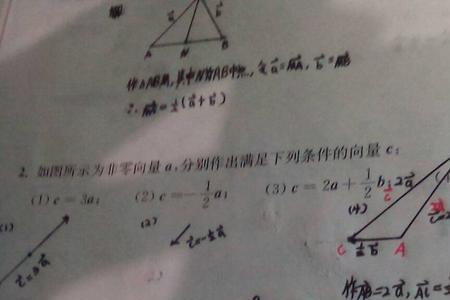 a⃗ b⃗
A N B
作△ABM,其中N为AB中点,令a⃗=MA, b⃗=MB
∴ MN=½(a⃗+b⃗)
2. 如图所示为非零向量 a,分别作出满足下列条件的向量 c:
(1) c=3a; (2) c=-½a; (3) c=2a+½b; 2a⃗
(2) (4)
c⃗=3a⃗ c⃗=-½a⃗ C ½b⃗ A
=2a⃗,